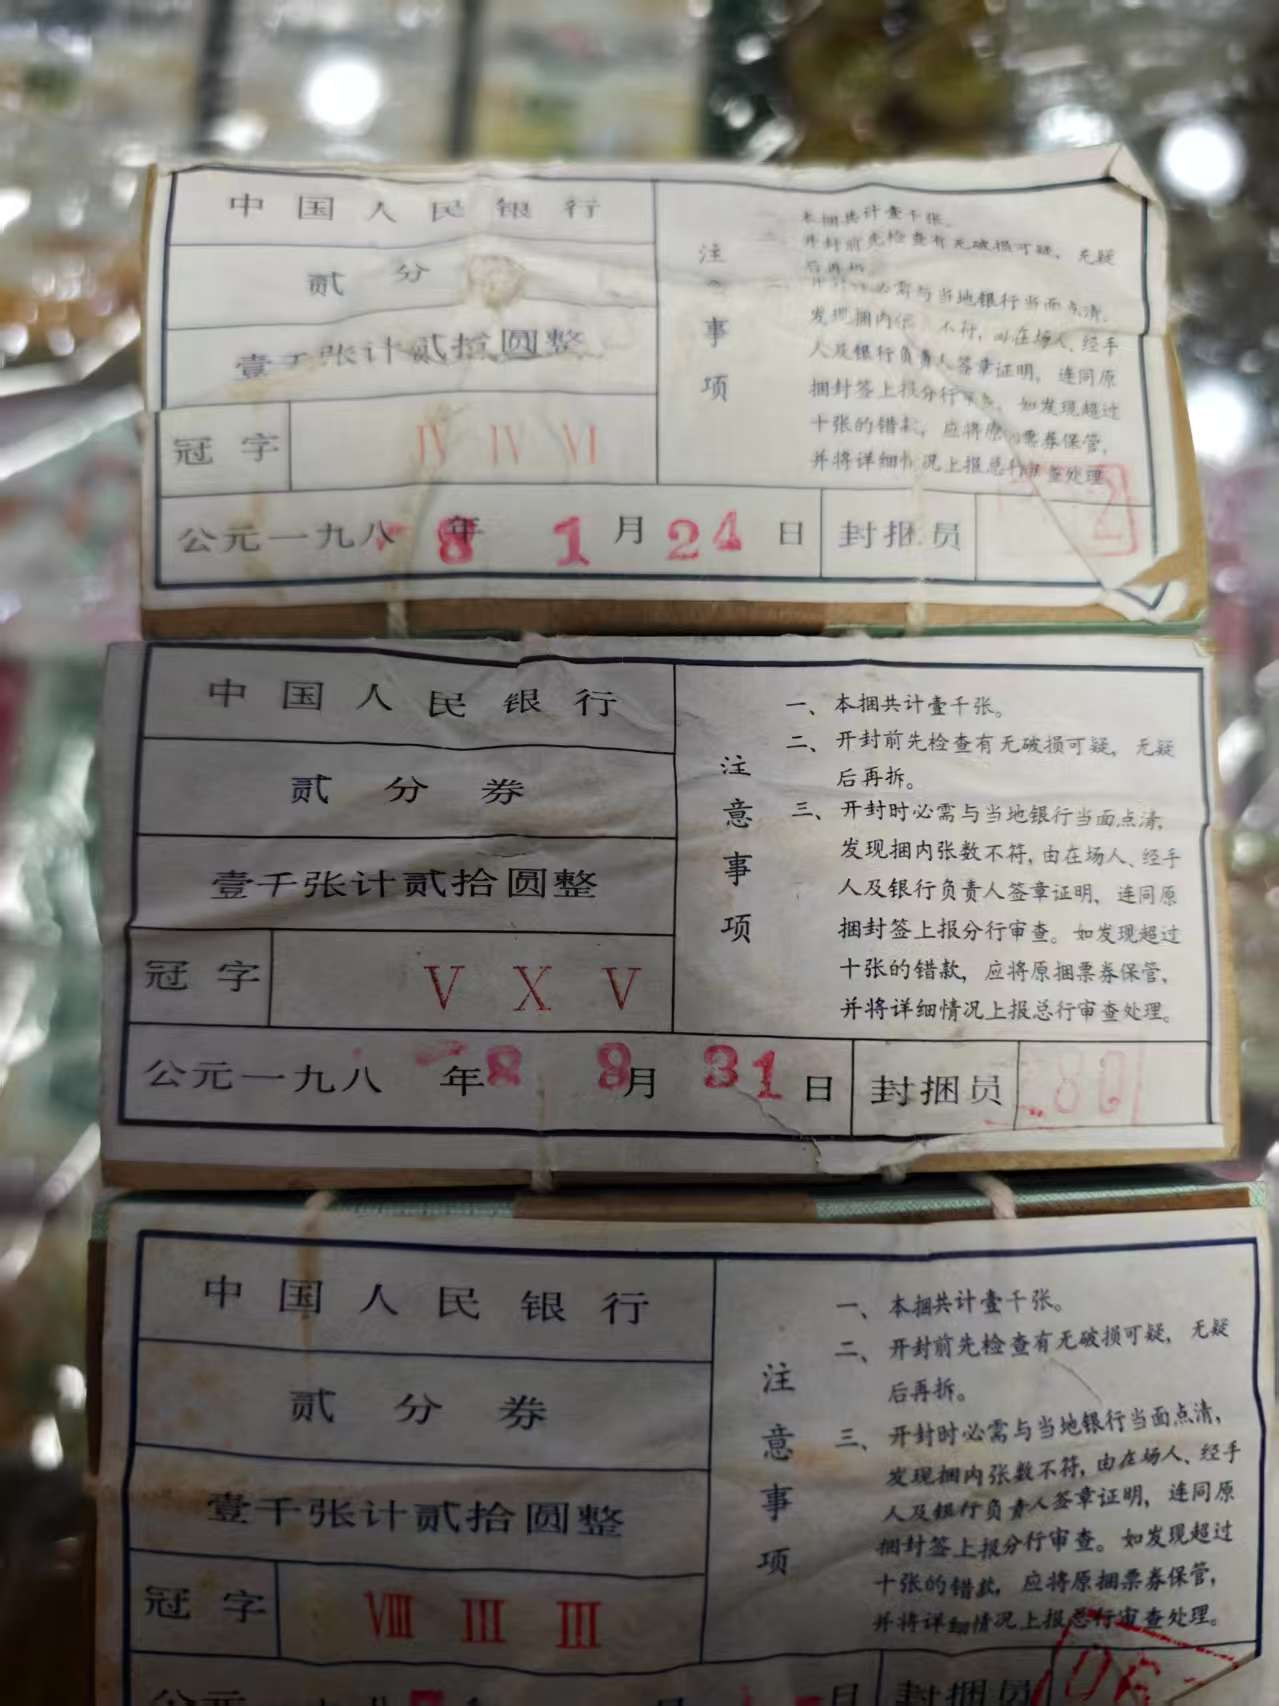 中国人民银行
贰分
壹千张计贰拾圆整
冠字 IV IV VI
公元一九八 年 8 1 月 24 日 封捆员
注 事项
本捆共计壹千张。
开封前先检查有无破损可疑，无疑
后再拆。
必需与当地银行当面点清，
发现捆内 不符，由在场人、经手
人及银行负责人签章证明，连同原
捆封签上报分行 如发现超过
十张的错款，应将原 票券保管，
并将详细情况上报总行审查处理
中国人民银行
贰分券
壹千张计贰拾圆整
冠字 V X V
公元一九八 年 8 月 31 日 封捆员
注意事项
一、本捆共计壹千张。
二、开封前先检查有无破损可疑，无疑
后再拆。
三、开封时必需与当地银行当面点清，
发现捆内张数不符，由在场人、经手
人及银行负责人签章证明，连同原
捆封签上报分行审查。如发现超过
十张的错款，应将原捆票券保管，
并将详细情况上报总行审查处理。
中国人民银行
贰分券
壹千张计贰拾圆整
冠字 VIII III III
封捆员
注意事项
一、本捆共计壹千张。
二、开封前先检查有无破损可疑，无疑
后再拆。
三、开封时必需与当地银行当面点清，
发现捆内张数不符，由在场人、经手
人及银行负责人签章证明，连同原
捆封签上报分行审查。如发现超过
十张的错款，应将原捆票券保管，
并将详细情况上报总行审查处理。